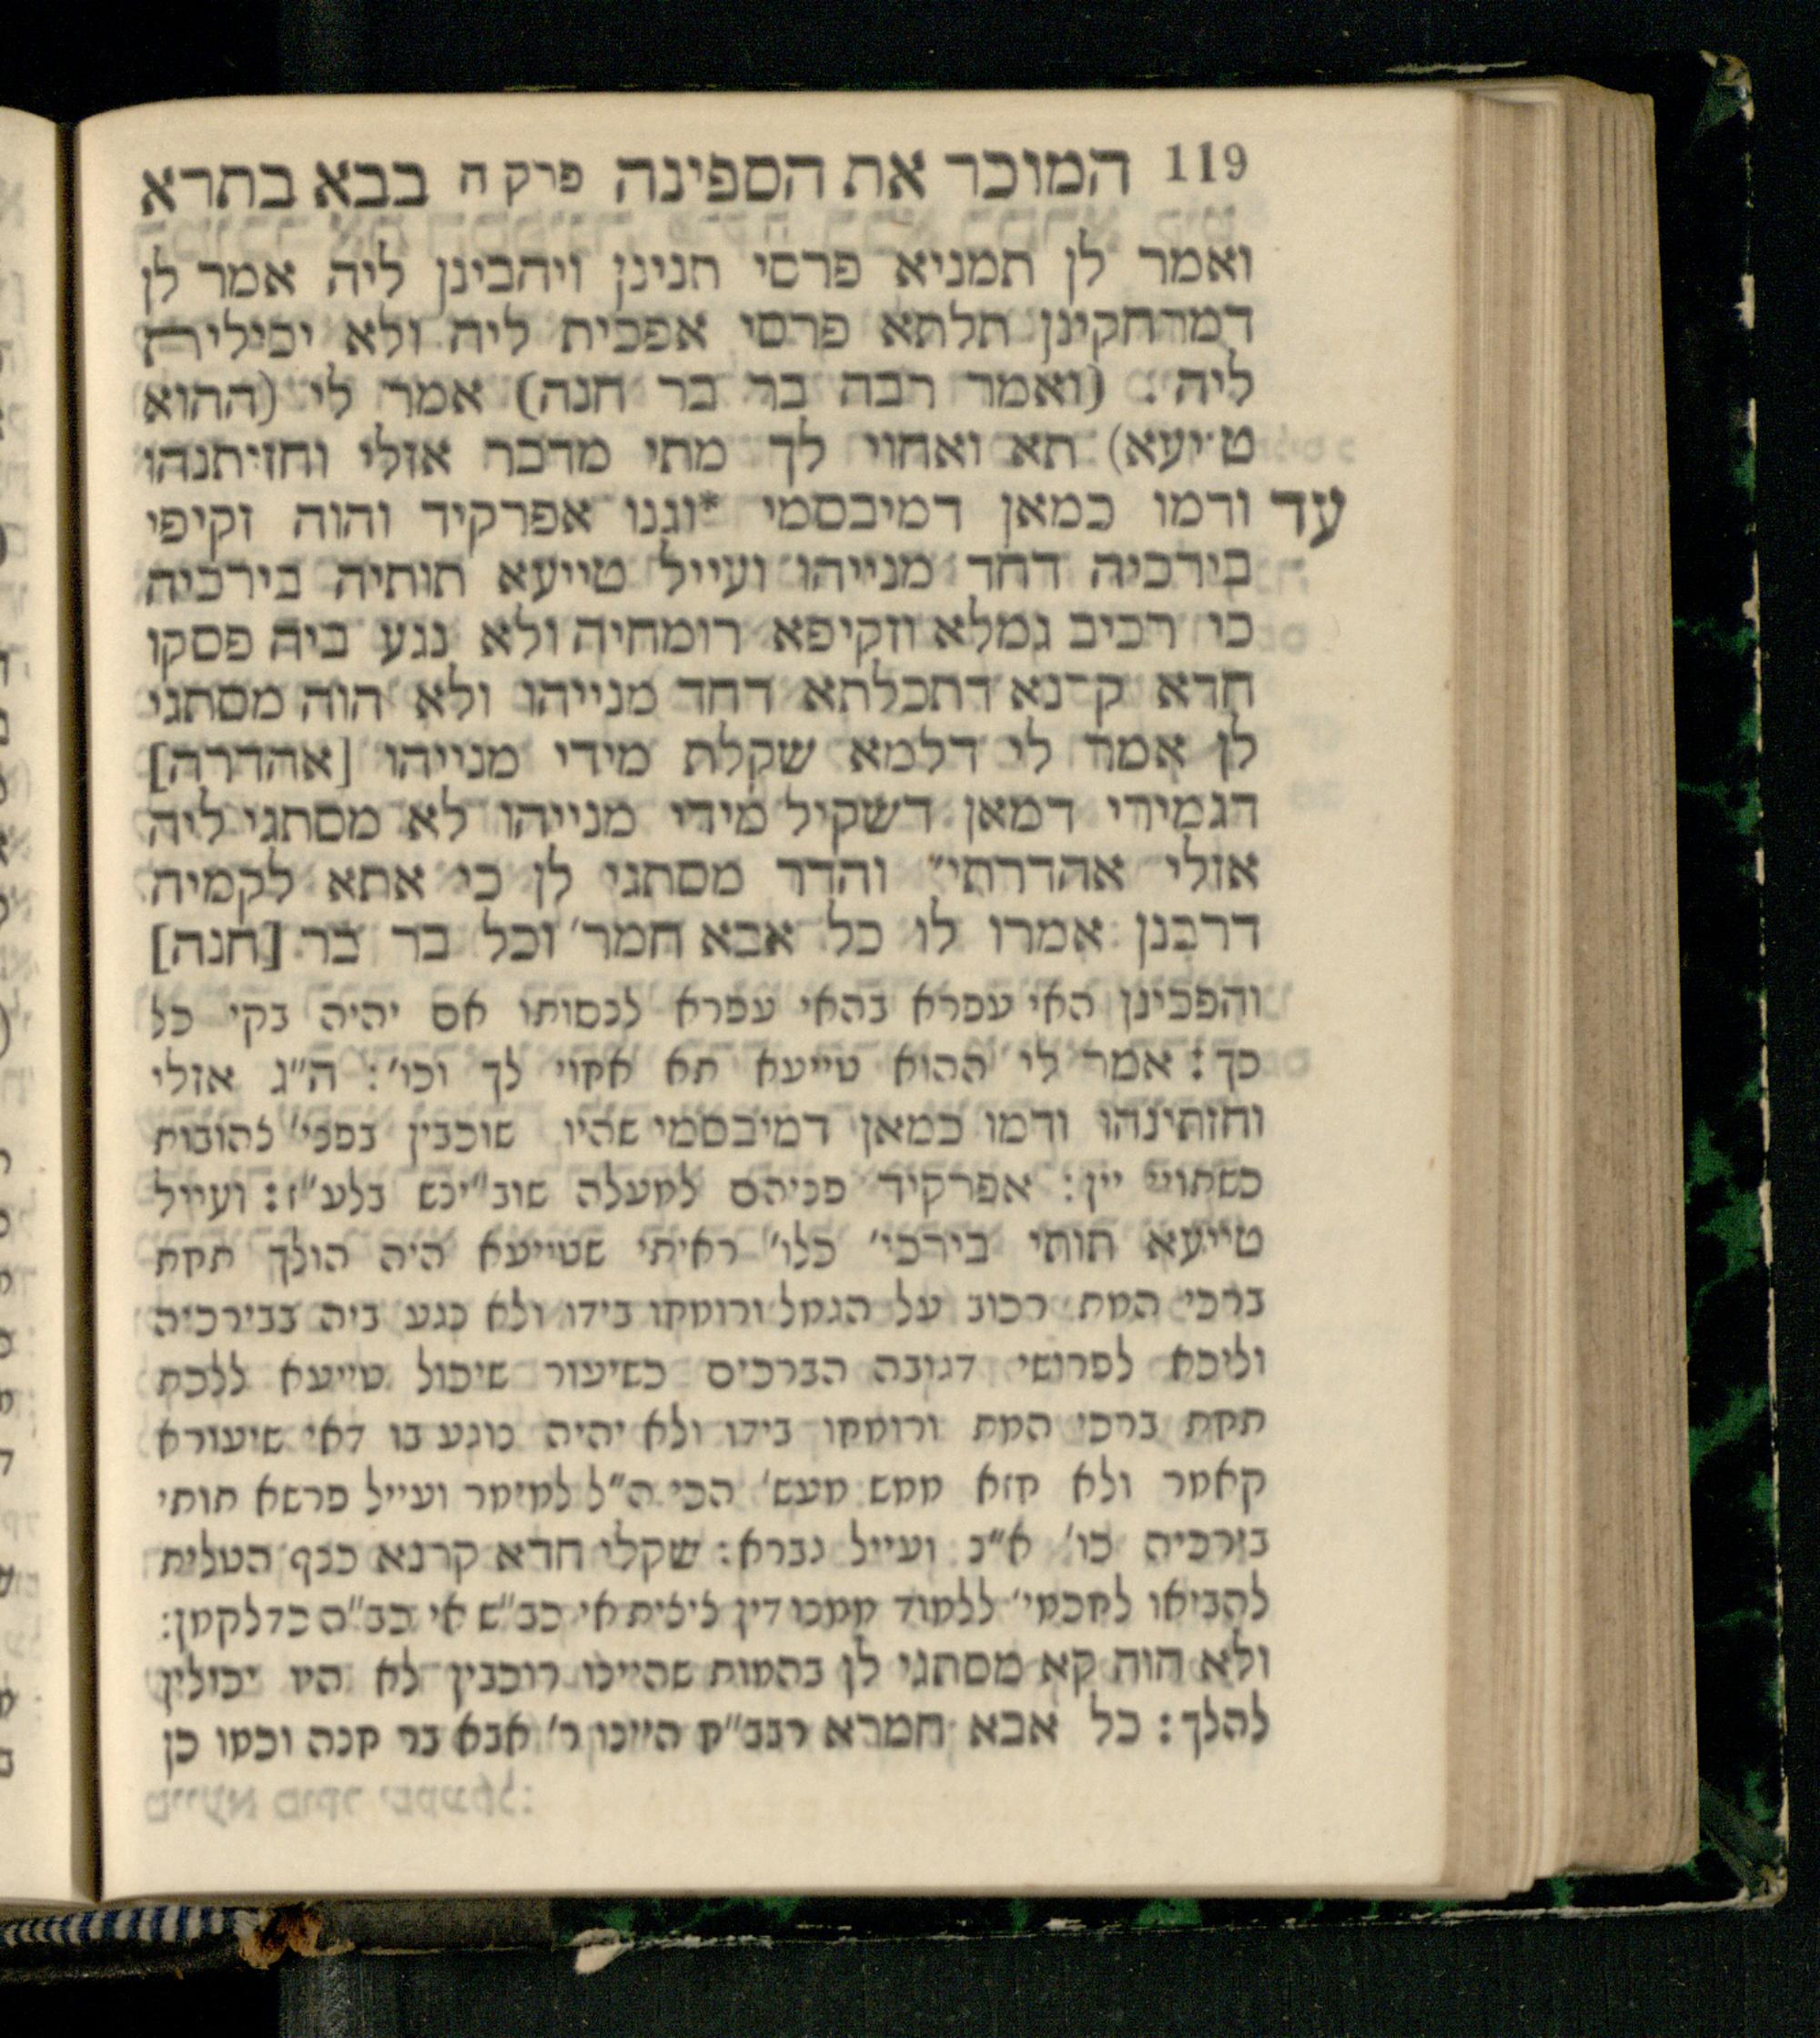 119 המוכר את הספינה פרק ח בבא בתרא
ואמר לן תמניא פרסי תנינן ויהבינן ליה אמר לן
דמרחקינן תלתא פרסי אפכית ליה ולא יכילית
ליה: (ואמר רבה בר בר חנה) אמר לי (ההוא
טייעא) תא ואחוי לך מתי מדבר אזלי וחזיתנהו
עד ודמו כמאן דמיבסמי *וגנו אפרקיד והוה זקיפי
בירכיה דחד מנייהו ועייל טייעא תותיה בירכיה
כי רכיב גמלא וזקיפא רומחיה ולא נגע ביה פסקו
חדא קרנא דתכלתא דחד מנייהו ולא הוה מסתגי
לן אמר לי דלמא שקלת מידי מנייהו [אהדרה]
דגמירי דמאן דשקיל מידי מנייהו לא מסתגי ליה
אזלי אהדרתי׳ והדר מסתגי לן כי אתא לקמיה
דרבנן אמרו לו כל אבא חמר׳ וכל בר בר [חנה]
והפכינן האי עפרא בהאי עפרא לנסותו אם יהיה בקי כל
כך: אמר לי ההוא טייעא תא אחוי לך וכו׳: ה״ג אזלי
וחזתינהו ודמו כמאן דמיבסמי שהיו שוכבין בפני׳ להובות
כשתויי יין: אפרקיד פניהם למעלה שוב״ינש בלע״ז: ועייל
טייעא תותי בירכי׳ כלו׳ ראיתי שטייעא היה הולך תחת
ברכי המת רכוב על הגמל ורומחו בידו ולא נגע ביה בבירכיה
וליכא לפרושי דגובה הברכים כשיעור שיכול טייעא ללכת
תחת ברכי המת ורומחו בידו ולא יהיה נוגע בו דאי שיעורא
קאמר ולא חזא ממש מעש׳ הכי ה״ל למימר ועייל פרשא תותי
בירכיה כו׳ א״נ ועייל גברא: שקלי חדא קרנא כנף הטלית
להביאו לחכמי׳ ללמוד ממנו דין ציצית אי כב״ש אי כב״ה כדלקמן:
ולא הוה קא מסתגי לן בהמות שהיינו רוכבין לא היו יכולין
להלך: כל אבא חמרא רבב״ח היינו ר׳ אבא בר חנה וכמו כן